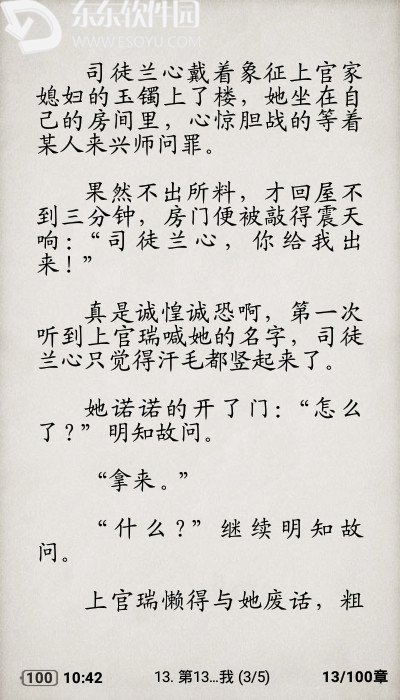 东东软件园
WWW.ESOYU.COM
司徒兰心戴着象征上官家
媳妇的玉镯上了楼，她坐在自
己的房间里，心惊胆战的等着
某人来兴师问罪。
果然不出所料，才回屋不
到三分钟，房门便被敲得震天
响：“司徒兰心，你给我出
来！”
真是诚惶诚恐啊，第一次
听到上官瑞喊她的名字，司徒
兰心只觉得汗毛都竖起来了。
她诺诺的开了门：“怎么
了？”明知故问。
“拿来。”
“什么？”继续明知故
问。
上官瑞懒得与她废话，粗
100 10:42 13. 第13...我 (3/5) 13/100章